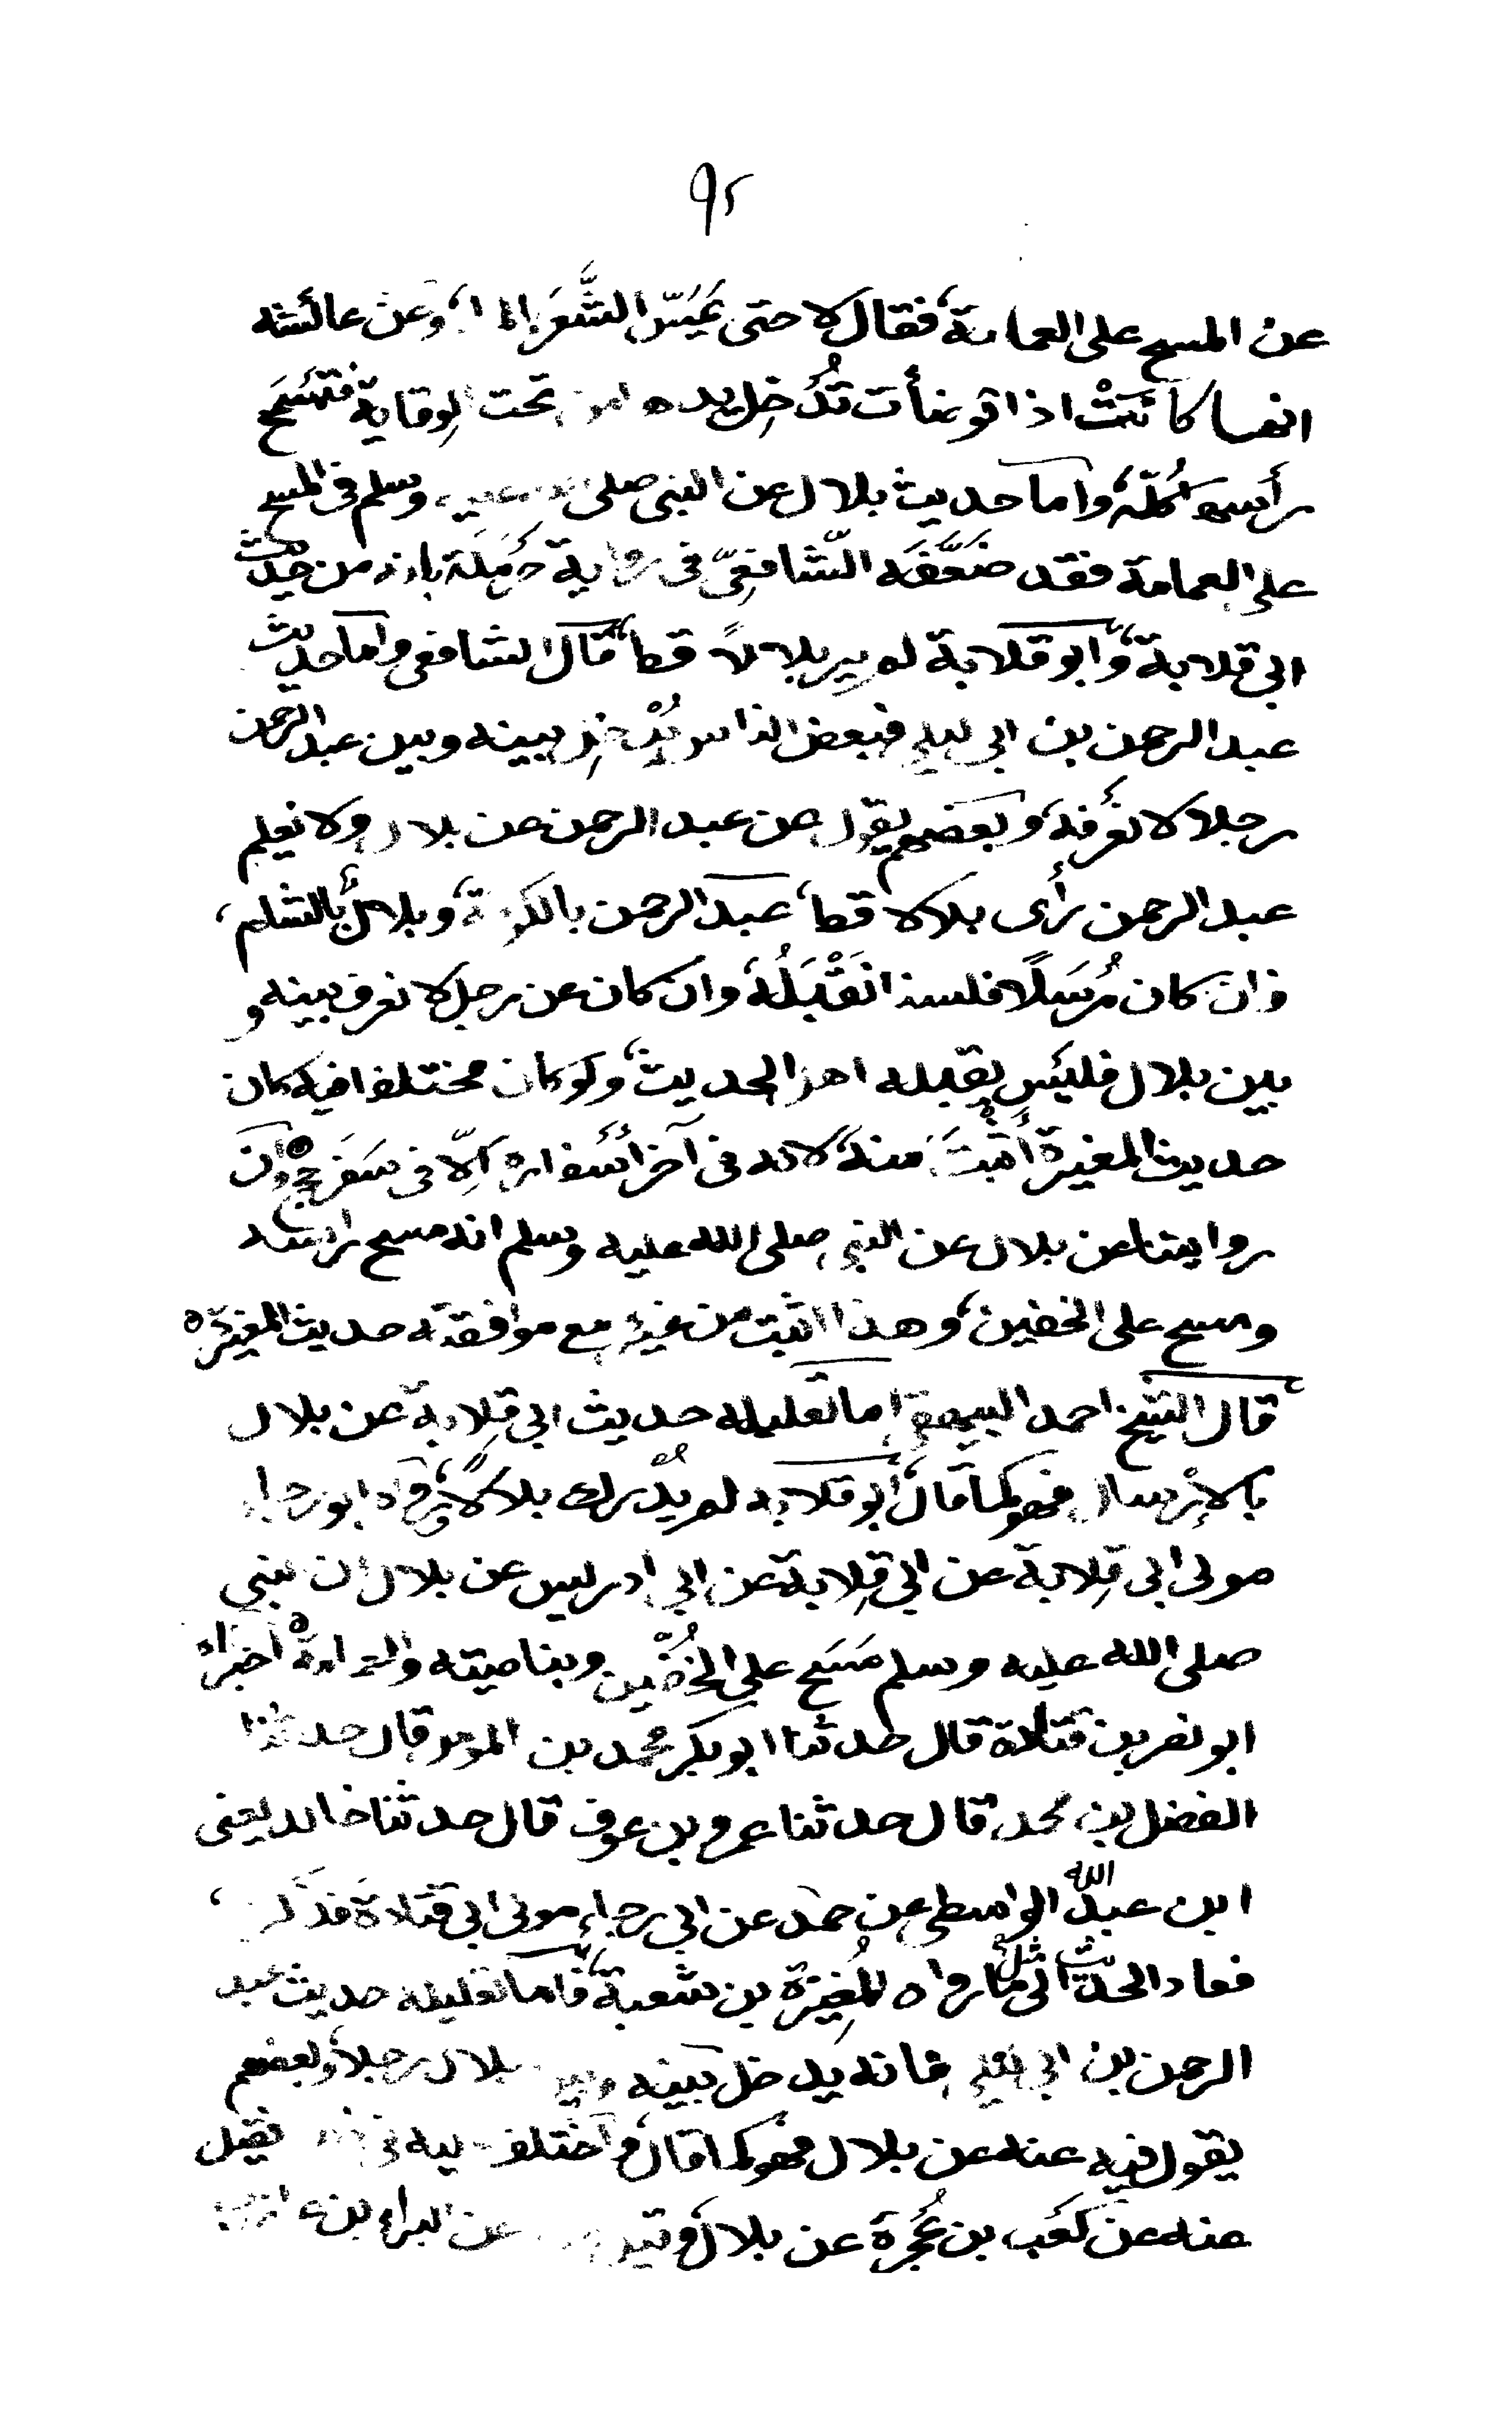 ٩٢
عن المسح على العمامة، فقال لا حتى يَمَسَّ الشَّعَرَ الماء، وعن عائشه
انها كانَتْ اذا توضأت تُدْخِل يدها من تحت الوقاية فتَمْسَح
رأسها كُلّه، واما حديث بلال عن النبى صلى الله عليه وسلم فى المسح
على العمامة فقد ضَعَّفَه الشّافِعِىّ فى رواية حَرْمَلَة بانه من حديث
ابى قلابة، وابو قلابة لم ير بلالاً قط، قال الشافعى واما حديث
عبد الرحمن بن ابى ليلى فبعض الناس يُدْخِل بينه وبين عبد الرحمن
رجلا لا نعْرِفه، وبعضهم يقول عن عبد الرحمن عن بلال ولا نعلم
عبد الرحمن رأى بلالا قط، عبد الرحمن بالكوفة، وبلالٌ بالشام،
فان كان مُرسَلًا فلسنا نَقْبَلُهُ، وان كان عن رجل لا نعرف بينه و
بين بلال فليْس يقبله اهل الحديث، ولو كان مختلفا فيه كان
حديث المغيرة أثْبَتَ منه، لانه فى آخر أسْفاره الّا فى سَفَر حج، وان
روايتنا عن بلال عن النبى صلى الله عليه وسلم انه مسح رأسه
ومسح على الخفين، وهذا اثبت من غيره مع موافقته حديث المغيرة ٥
قال الشيخ احمد البيهقى اما تعليله حديث ابى قلابة عن بلال
بالإرْسال فهو كما قال، أبو قلابه لم يُدْرك بلالًا، ورواه ابو رجاء
مولى ابى قِلابة عن ابى قِلابة عن ابى ادريس عن بلال ان النبى
صلى الله عليه وسلم مَسَح على الخُفَّين وبناصيته والعمامة ٥ أخبرناه
ابو نصر بن قتادة قال حدثنا ابو بكر محمد بن المؤمل قال حدثنا
الفضل بن محمد قال حدثنا عمرو بن عوف قال حدثنا خالد يعنى
ابن عبد الله الواسطى عن حمد عن ابى رجاء مولى ابى قتلادة فذكره،
فعاد الحديث الى مثل ما رواه المُغِيْرَة بن شعبة، فاما تعليله حديث عبد
الرحمن بن ابى ليلى فانه يدخل بينه وبين بلال رجلا، وبعضهم
يقول فيه عنه عن بلال فهو كما قال، واختلف عليه فى فقيل
عنه عن كَعْب بن عُجْرَة عن بلال، وقيل عن البراء بن عازب